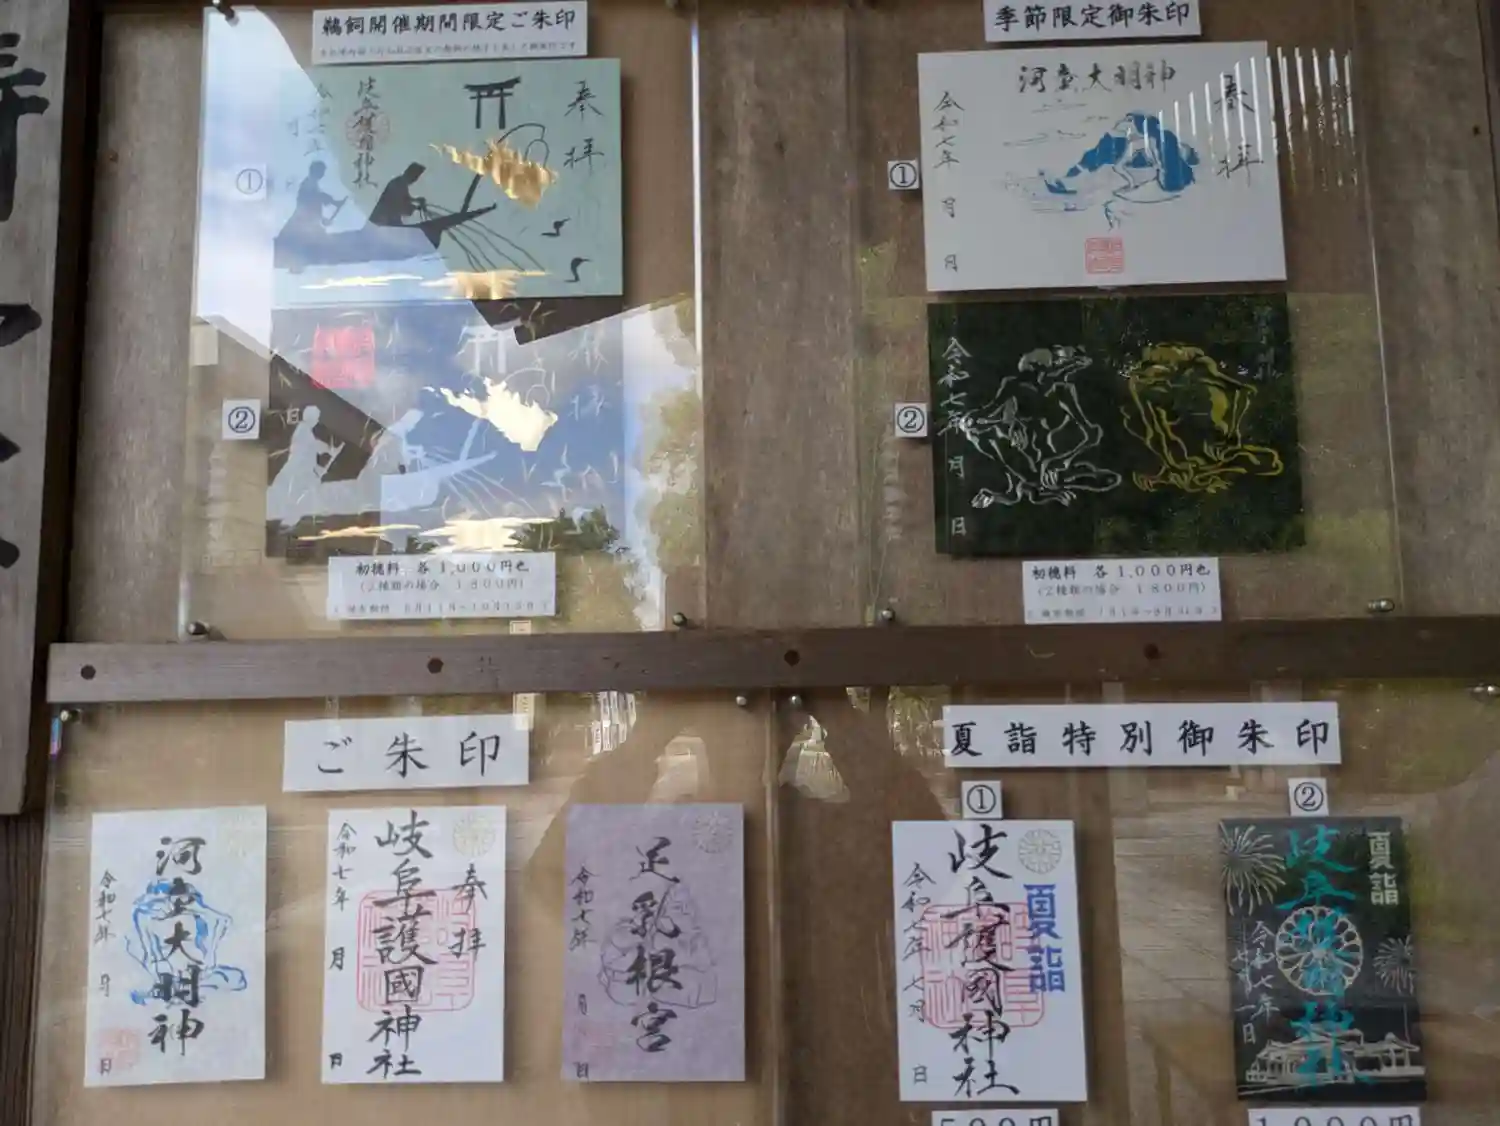 鵜飼開催期間限定ご朱印
奉拝
岐阜護國神社
令和七年
月
①
②
日
初穂料 各1,000円也
(2種類の場合 1800円)
季節限定御朱印
①
奉拝
河童大明神
令和七年
月
日
②
令和七年
月
日
初穂料 各1,000円也
(2種類の場合 1800円)
ご朱印
河童大明神
令和七年
月
日
奉拝
岐阜護國神社
令和七年
月
日
足乳根宮
令和七年
月
日
夏詣特別御朱印
①
夏詣
岐阜護國神社
令和七年七月
日
500円
②
夏詣
岐阜護國神社
令和七年
七月
日
1000円